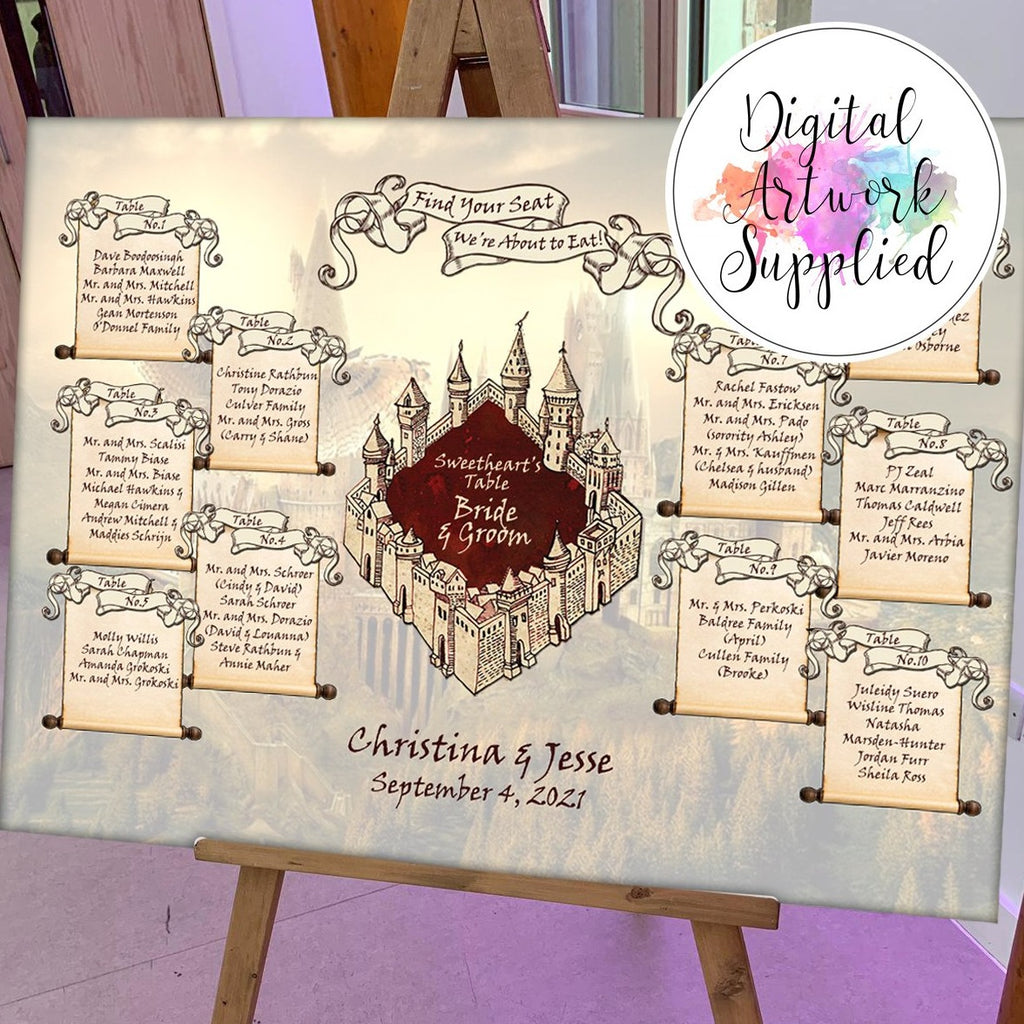 Digital
Artwork
Supplied
Find Your Seat
We're About to Eat!
Table
No.1
Dave Boodoosingh
Barbara Maxwell
Mr. and Mrs. Mitchell
Mr. and Mrs. Hawkins
Gean Mortenson
O'Donnel Family
Table
No.2
Christine Rathbun
Tony Dorazio
Culver Family
Mr. and Mrs. Gross
(Carry & Shane)
Table
No.3
Mr. and Mrs. Scalisi
Tammy Biase
Mr. and Mrs. Biase
Michael Hawkins &
Megan Cimera
Andrew Mitchell &
Maddies Schrijn
Table
No.4
Mr. and Mrs. Schroer
(Cindy & David)
Sarah Schroer
Mr. and Mrs. Dorazio
(David & Louanna)
Steve Rathbun &
Annie Maher
Table
No.5
Molly Willis
Sarah Chapman
Amanda Grokoski
Mr. and Mrs. Grokoski
Sweetheart's
Table
Bride
& Groom
Christina & Jesse
September 4, 2021
Osborne
No.7
Rachel Fastow
Mr. and Mrs. Ericksen
Mr. and Mrs. Pado
(sorority Ashley)
Mr. & Mrs. Kauffmen
(Chelsea & husband)
Madison Gillen
Table
No.8
PJ Zeal
Marc Marranzino
Thomas Caldwell
Jeff Rees
Mr. and Mrs. Arbia
Javier Moreno
Table
No.9
Mr. & Mrs. Perkoski
Baldree Family
(April)
Cullen Family
(Brooke)
Table
No.10
Juleidy Suero
Wisline Thomas
Natasha
Marsden-Hunter
Jordan Furr
Sheila Ross